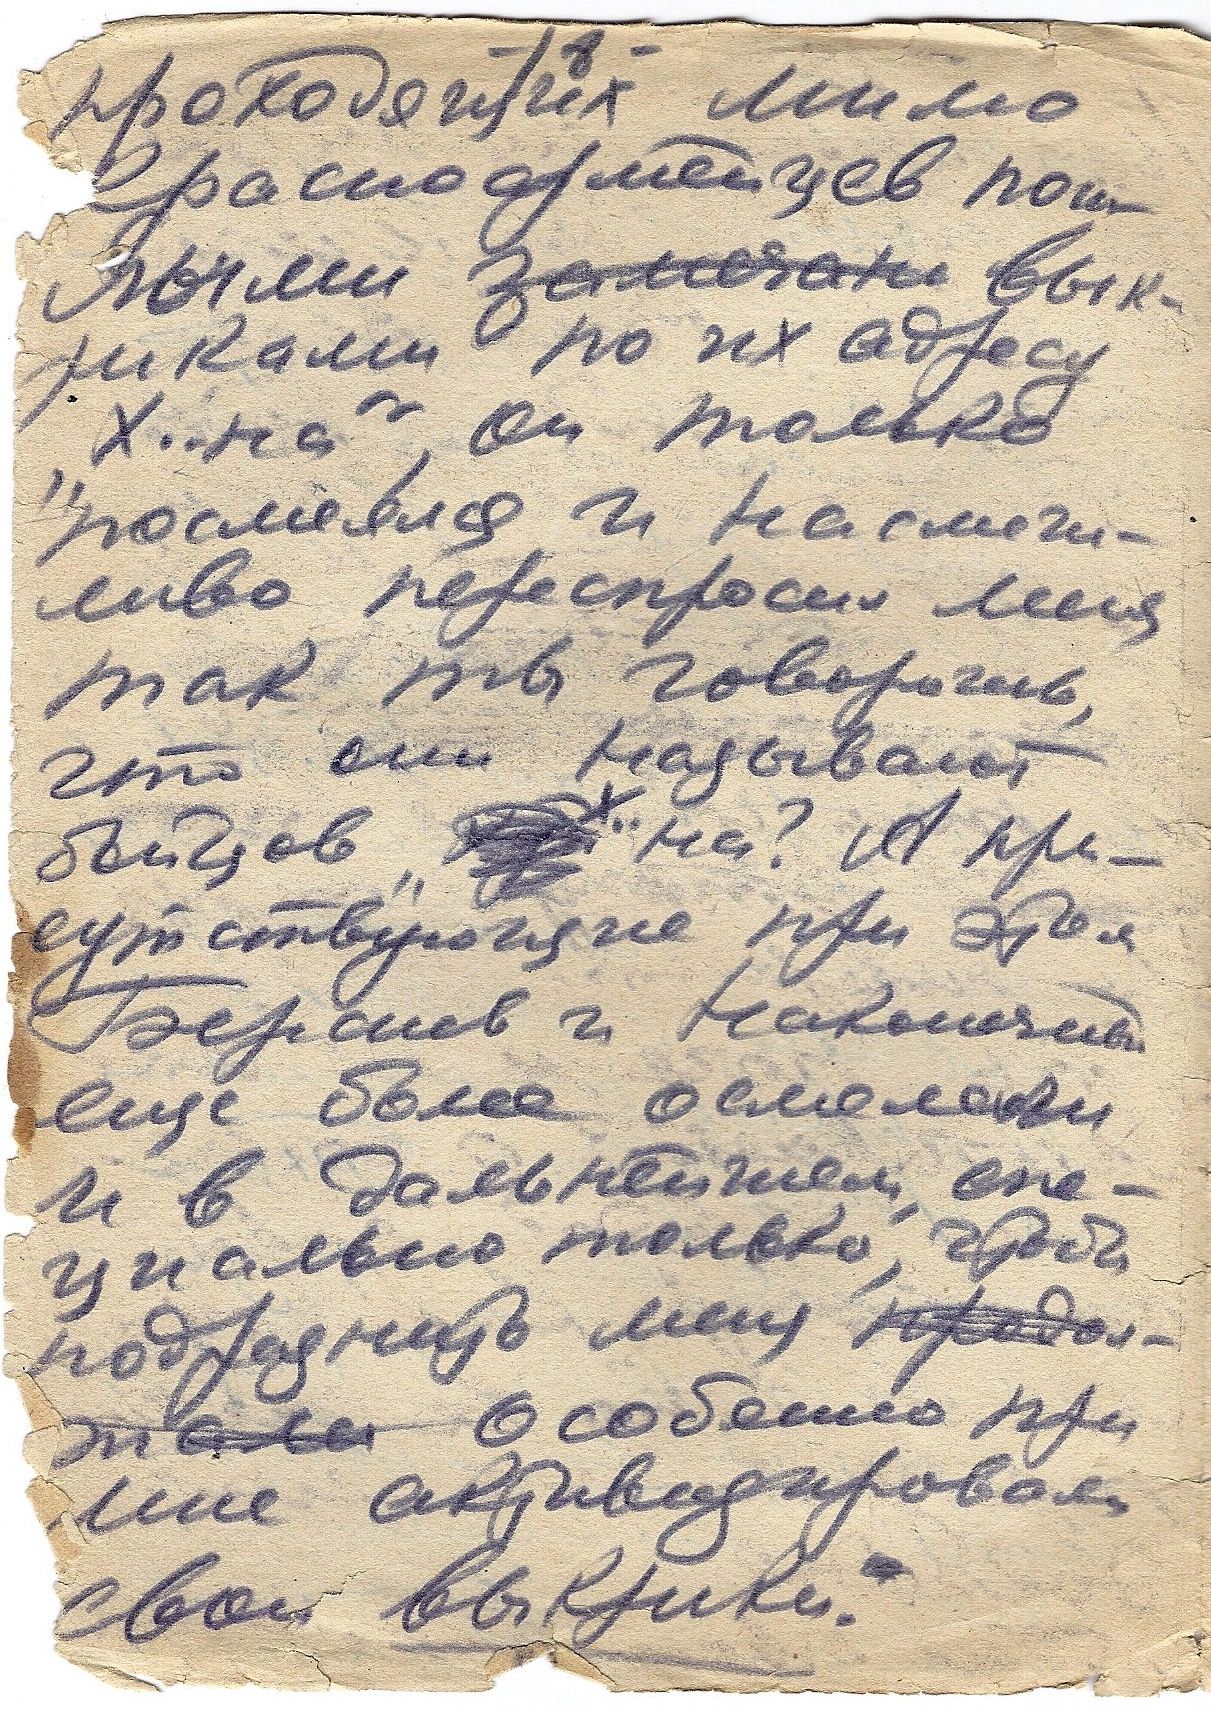 -8-
проходящих мимо
красноармейцев пош
лыми замечани вык-
риками по их адресу
х..на", он только
"посмеялся и насмеш-
ливо переспросил меня
так ты говоришь,
что они называют
бойцов „х..на? А при-
сутствующие при этом
и
еще более осмелели
и в дальнейшем, спе-
циально только, чтоб
подразнить меня продол-
жали особенно при
мне активизировали
свои выкрики.